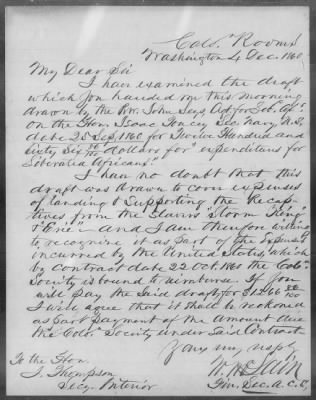 Colo. Rooms
Washington 4 Dec. 1860
My Dear Sir
I have examined the draft
which you handed me this morning
drawn by the Rev. John Seys, Agt for Lib. Afs.
on the Hon. Isaac Toucey Sec. Navy U.S.
date 20 Sep. 1860 for Twelve Hundred and
Sixty Six 80/100 dollars for "expenditures for
Liberated Africans."
I have no doubt that this
draft was drawn to cover expenses
of landing & Supporting the Recap-
tives from the Slavers "Storm King"
& "Erie" - and I am therefore willing
to recognize it as part of the Expenses
incurred by the United States, which
by Contract date 22 Oct. 1860 the Colo.
Society is bound to reimburse. If you
will pay the said draft, for $1266 80/100
I will agree that it shall be reckoned
as part payment of the Amount due
the Colo. Society under Said Contract
Yours very resp.
W. McLain
Fin. Sec. A. C. S.
To the Hon
J. Thompson
Secy. Interior.